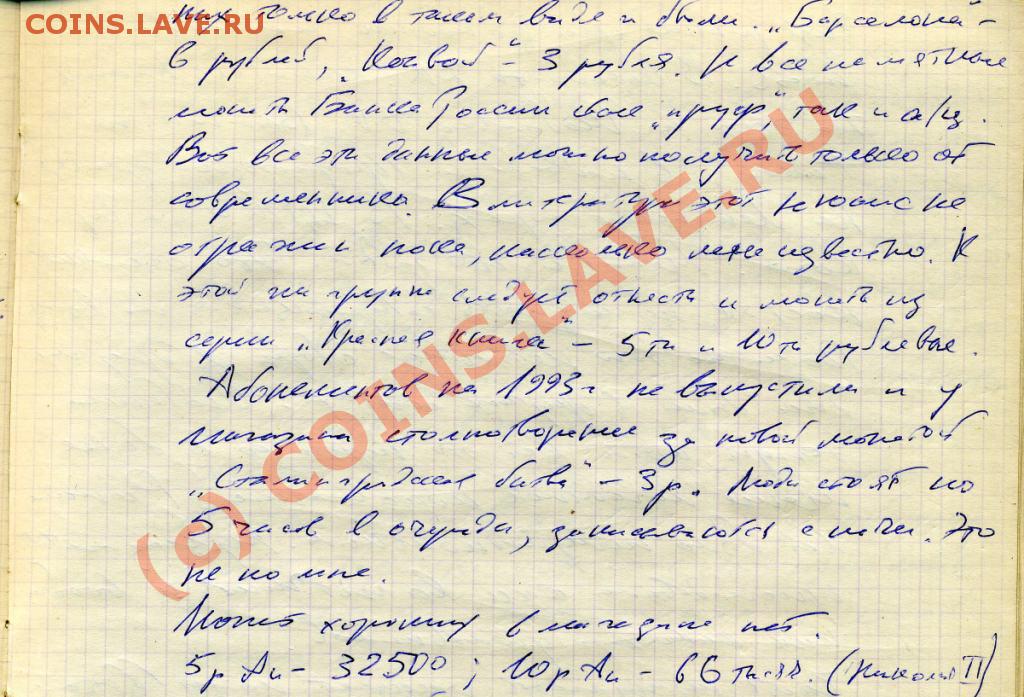 COINS.LAVE.RU
них только в таком виде и были. „Барселона" –
в рублей, „Конвой" – 3 рубля. И все памятные
монеты Банка России были „пруф", так и а/ц.
Вот все эти данные можно получить только от
современника. В литературе этот нюанс не
отражён пока, насколько мне известно. К
этой же группе следует отнести и монеты из
серии „Красная книга" – 5ти и 10ти рублевые.
Абонементов на 1993 г не выпустили и у
магазина столпотворение за новой монетой
„Сталинградская битва" – 3 р. Люди стоят по
5 часов в очереди, записываются с ночи. Это
не по мне.
Монет хороших в магазине нет.
5 р Au – 32500 ; 10 р Au – 66 тыс. (Николай II)
(c) COINS.LAVE.RU